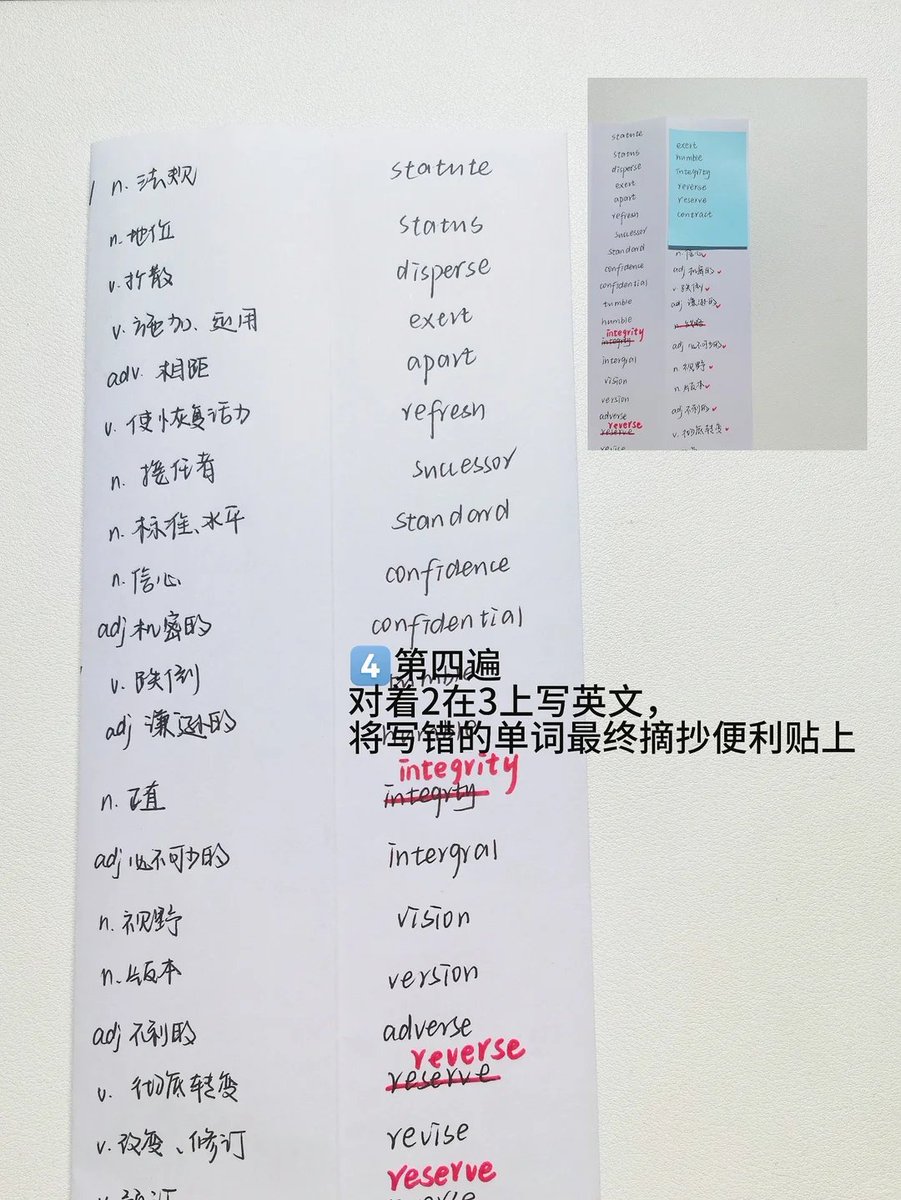 n. 法规 statute
n. 地位 status
v. 扩散 disperse
v. 施加、运用 exert
adv. 相距 apart
v. 使恢复活力 refresh
n. 接任者 successor
n. 标准、水平 standard
n. 信心 confidence
adj 机密的 confidential
v. 跌倒
adj 谦逊的
4 第四遍
对着2在3上写英文，
将写错的单词最终摘抄便利贴上
integrity
n. 正直 integrty
adj 必不可少的 intergral
n. 视野 vision
n. 版本 version
adj 不利的 adverse
reverse
v. 彻底转变 reserve
v. 改变、修订 revise
reserve
statute
status
disperse
exert
apart
refresh
successor
standard
confidence
confidential
tumble
humble
integrity
integrty
intergral
vision
version
adverse
reverse
reserve
revise
exert
humble
integrity
reverse
reserve
contract
n. 信心
adj 机密的
v. 跌倒
adj 谦逊的
adj 必不可少的
n. 视野
n. 版本
adj 不利的
v. 彻底转变